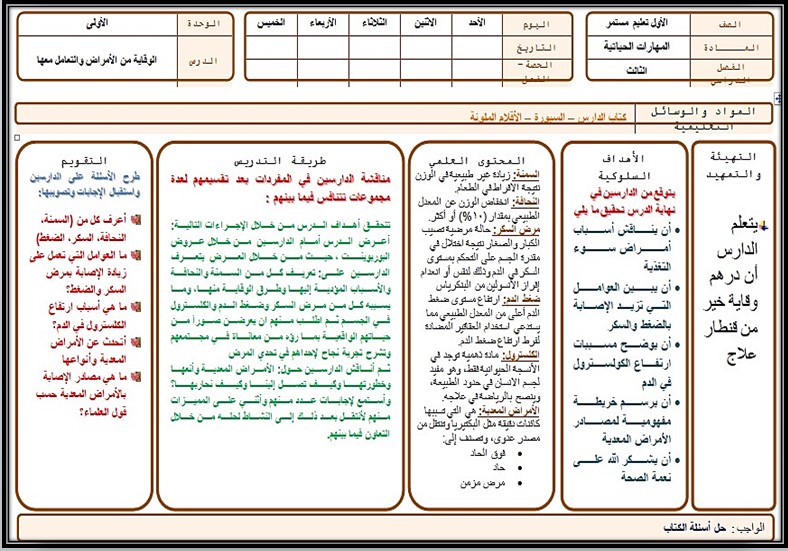 الصف
الأول تعليم مستمر
المــــــادة
المهارات الحياتية
الفصل الدراسي
الثالث
اليوم
الأحد
الاثنين
الثلاثاء
الأربعاء
الخميس
التاريخ
الحصة - الفصل
الوحدة
الأولى
الدرس
الوقاية من الأمراض والتعامل معها
المواد والوسائل التعليمية
كتاب الدارس – السبورة – الأقلام الملونة
التهيئة
والتمهيد
يتعلم
الدارس
أن درهم
وقاية خير
من قنطار
علاج
الأهداف
السلوكية
يتوقع من الدارسين في
نهاية الدرس تحقيق ما يلي
أن يناقش أسباب
أمراض سوء
التغذية
أن يبين العوامل
التي تزيد الإصابة
بالضغط والسكر
أن يوضح مسببات
ارتفاع الكولسترول
في الدم
أن يرسم خريطة
مفهومية لمصادر
الأمراض المعدية
أن يشكر الله على
نعمة الصحة
المحتوى العلمي
السمنة: زيادة غير طبيعية في الوزن
نتيجة الافراط في الطعام.
النحافة: انخفاض الوزن عن المعدل
الطبيعي بمقدار (١٠%) أو أكثر.
مرض السكر: حالة مرضية تصيب
الكبار والصغار نتيجة اختلال في
مقدرة الجسم على التحكم بمستوى
السكر في الدم وذلك لنقص أو انعدام
إفراز الأنسولين من البنكرياس
ضغط الدم: ارتفاع مستوى ضغط
الدم أعلى من المعدل الطبيعي مما
يستدعي استخدام العقاقير المضادة
لفرط ارتفاع ضغط الدم.
الكلسترول: مادة دهنية توجد في
الأنسجة الحيوانية فقط، وهو مفيد
لجسم الانسان في حدود الطبيعة،
وينصح بالرياضة في علاجه.
الأمراض المعدية: هي التي تسببها
كائنات دقيقة مثل البكتيريا وتنتقل من
مصدر عدوى، وتصنف إلى:
فوق الحاد
حاد
مرض مزمن
طريقة التدريس
مناقشة الدارسين في المفردات بعد تقسيمهم لعدة
مجموعات تتنافس فيما بينهم :
تتحقق أهداف الدرس من خلال الإجراءات التالية:
أعرض الدرس أمام الدارسين من خلال عروض
البوربوينت ، حيث من خلال العرض يتعرف
الدارسين على: تعريف كل من السمنة والنحافة
والأسباب المؤدية إليها وطرق الوقاية منها، وما
يسببه كل من مرض السكر وضغط الدم والكلسترول
في الجسم ثم اطلب منهم ان يعرضن صوراً من
حياتهم الواقعية بما رؤه من معاناة في مجتمعهم
وشرح تجربة نجاح لإحداهم في تحدي المرض
ثم أناقش الدارسين حول: الأمراض المعدية وأنعها
وخطورتها وكيف تصل إلينا وكيف نحاربها؟
وأستمع لإجابات عدد منهم وأثني على المميزات
منهم لأنتقل بعد ذلك إلى النشاط لحله من خلال
التعاون فيما بينهم.
التقويم
طرح الأسئلة على الدارسين
واستقبال الإجابات وتصويبها:
أعرف كل من (السمنة،
النحافة، السكر، الضغط)
ما العوامل التي تعمل على
زيادة الإصابة بمرض
السكر والضغط؟
ما هي أسباب ارتفاع
الكلسترول في الدم؟
أتحدث عن الأمراض
المعدية وأنواعها
ما هي مصادر الإصابة
بالأمراض المعدية حسب
قول العلماء؟
الواجب : حل أسئلة الكتاب